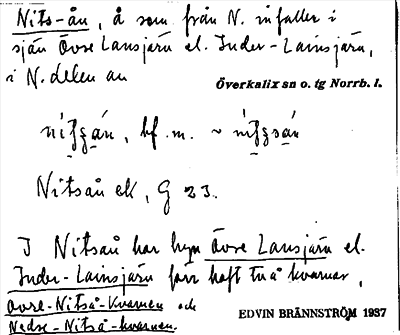 Nits-ån, å som från N. infaller i
sjön Övre Lansjärn el. Inder-Lainsjärn,
i N. delen av
Överkalix sn o. tg Norrb. l.
bf. m. ~
Nitsån ek, G 23.
I Nitsån har byn Övre Lansjärn el.
Inder-Lainsjärn förr haft två kvarnar,
Övre-Nitså-kvarnen och
Nedre-Nitså-kvarnen.
EDVIN BRÄNNSTRÖM 1937